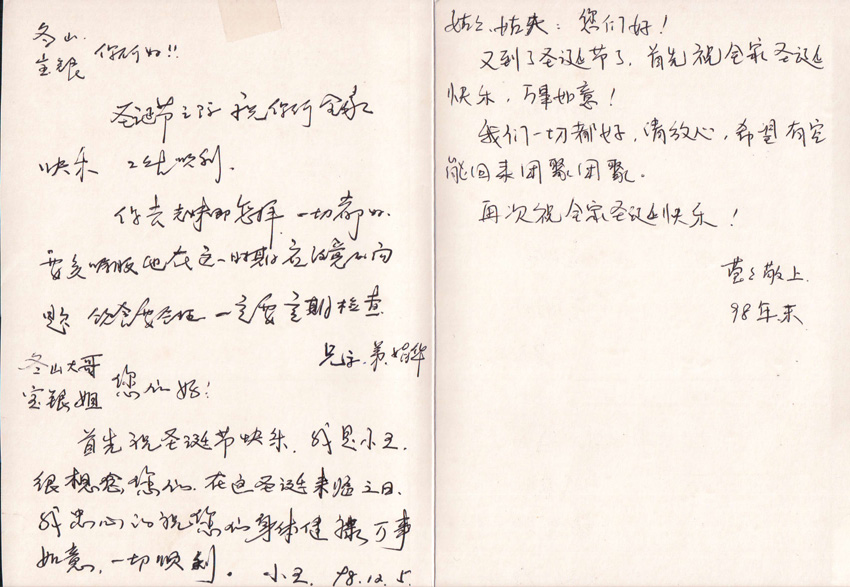 冬山.
宝银 你们好!!
圣诞节之际 祝你们全家
快乐 工作顺利.
你去 怎样 一切都好.
要多 他在这一时期 应注意的问
题 饮食要 一定要定期检查
兄字. 弟
冬山大哥
宝银姐 您们好:
首先祝圣诞节快乐. 我是小王.
很想念您们. 在这圣诞来临之日.
我忠心的祝您们身体健康万事
如意, 一切顺利.
小王. 98.12.5.
姑姑、姑夫: 您们好!
又到了圣诞节了, 首先祝全家圣诞
快乐, 万事如意!
我们一切都好, 请放心, 希望有空
能回来团聚团聚.
再次祝全家圣诞快乐!
敬上.
98年末